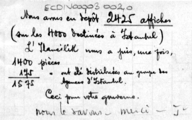 ECDN0003 0020
Nous avons en dépôt 2425 affiches
(sur les 4000 destinées à Istanbul)
L' a pris, une fois,
1400 pièces
175 ont été distribuées au groupe des
1575 d'Istanbul.
Ceci pour votre gouverne.
nous le savons - merci - J.